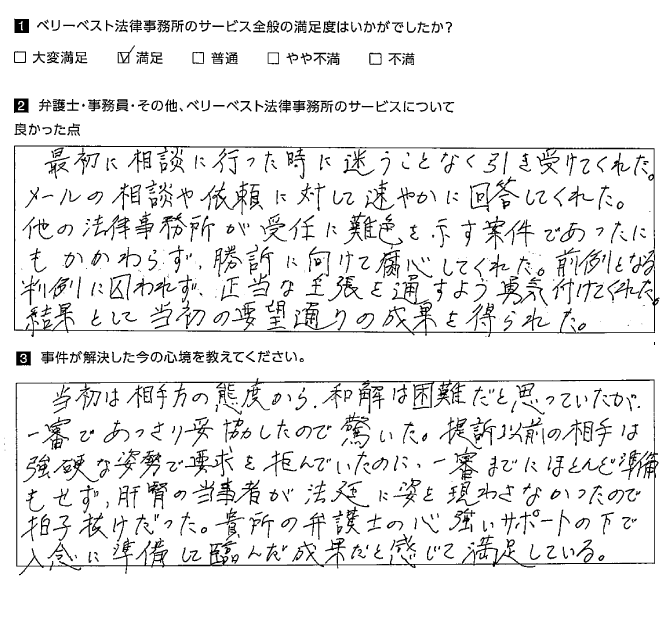 1 ベリーベスト法律事務所のサービス全般の満足度はいかがでしたか?
□ 大変満足 ☑ 満足 □ 普通 □ やや不満 □ 不満
2 弁護士・事務員・その他、ベリーベスト法律事務所のサービスについて
良かった点
最初に相談に行った時に迷うことなく引き受けてくれた。
メールの相談や依頼に対して速やかに回答してくれた。
他の法律事務所が受任に難色を示す案件であったに
もかかわらず、勝訴に向けて腐心してくれた。前例となる
判例に囚われず、正当な主張を通すよう勇気付けてくれた。
結果として当初の要望通りの成果を得られた。
3 事件が解決した今の心境を教えてください。
当初は相手方の態度から、和解は困難だと思っていたが、
一審であっさり妥協したので驚いた。提訴以前の相手は
強硬な姿勢で要求を拒んでいたのに、一審までにほとんど準備
もせず、肝腎の当事者が法廷に姿を現わさなかったので
拍子抜けだった。貴所の弁護士の心強いサポートの下で
入念に準備して臨んだ成果だと感じて満足している。